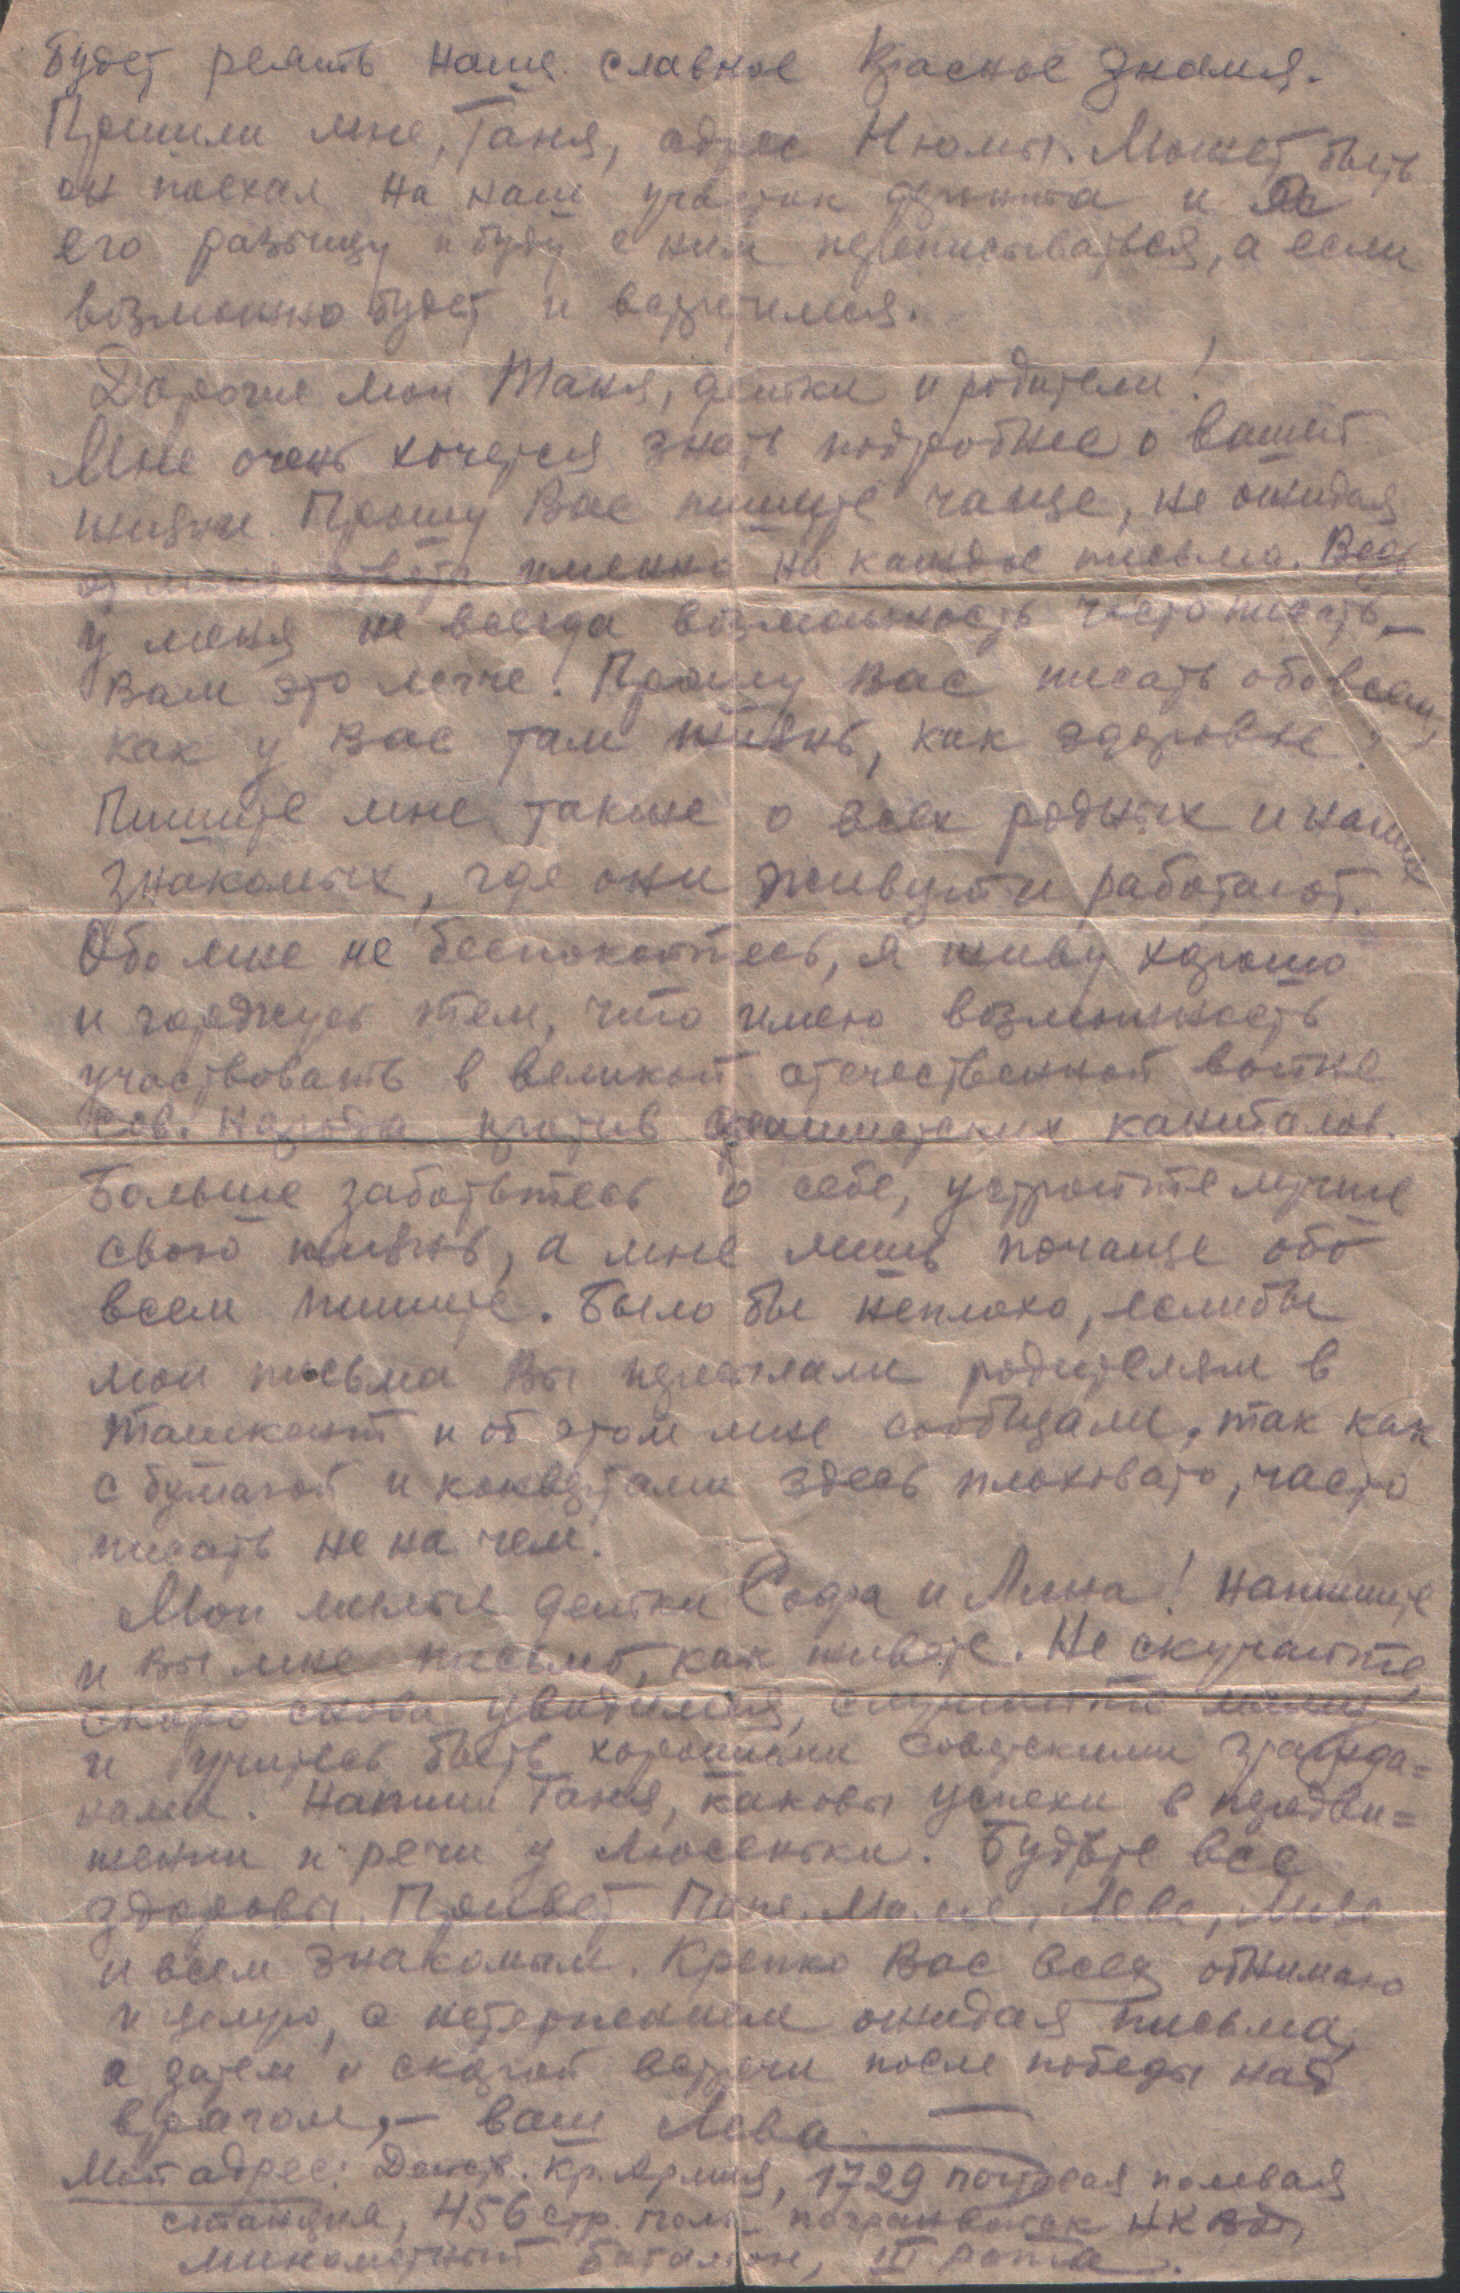 будет реять наше славное Красное Знамя.
Пришли мне, Таня, адрес Нюмы. Может быть
он поехал на наш участок фронта и я
его разыщу и буду с ним переписываться, а если
возможно будет и встретимся.
Дорогие мои Таня, детки и родители!
Мне очень хочется знать подробнее о вашей
жизни. Прошу Вас пишите чаще, не ожидая
от меня ответа именно на каждое письмо. Ведь
у меня не всегда возможность часто писать, –
Вам это легче. Прошу вас писать обо всем,
как у Вас там жизнь, как здоровье?
Пишите мне также о всех родных и наших
знакомых, где они живут и работают.
Обо мне не беспокойтесь, я живу хорошо
и горжусь тем, что имею возможность
участвовать в великой отечественной войне
сов. народа против фашистских каннибалов.
Больше заботьтесь о себе, устройте лучше
свою жизнь, а мне лишь почаще обо
всем пишите. Было бы неплохо, еслибы
мои письма Вы пересылали родителям в
Ташкент и об этом мне сообщали, так как
с бумагой и конвертами здесь плоховато, часто
писать не на чем.
Мои милые детки Софа и Лина! Напишите
и вы мне письмо, как живете. Не скучайте,
скоро снова увидимся, слушайте маму
и учитесь быть хорошими советскими гражда=
нами. Напиши Таня, каковы успехи в передви=
жении и речи у Люсеньки. Будьте все
здоровы. Привет Папе, Маме, Леве,
и всем знакомым. Крепко Вас всех обнимаю
и целую, с нетерпением ожидая письма,
а затем и скорой встречи после победы над
врагом, – ваш Лева
Мой адрес: Действ. Кр. Армия, 1729 почтовая полевая
станция, 456 стр. полк погранвойск НКВД,
минометный батальон, III рота.